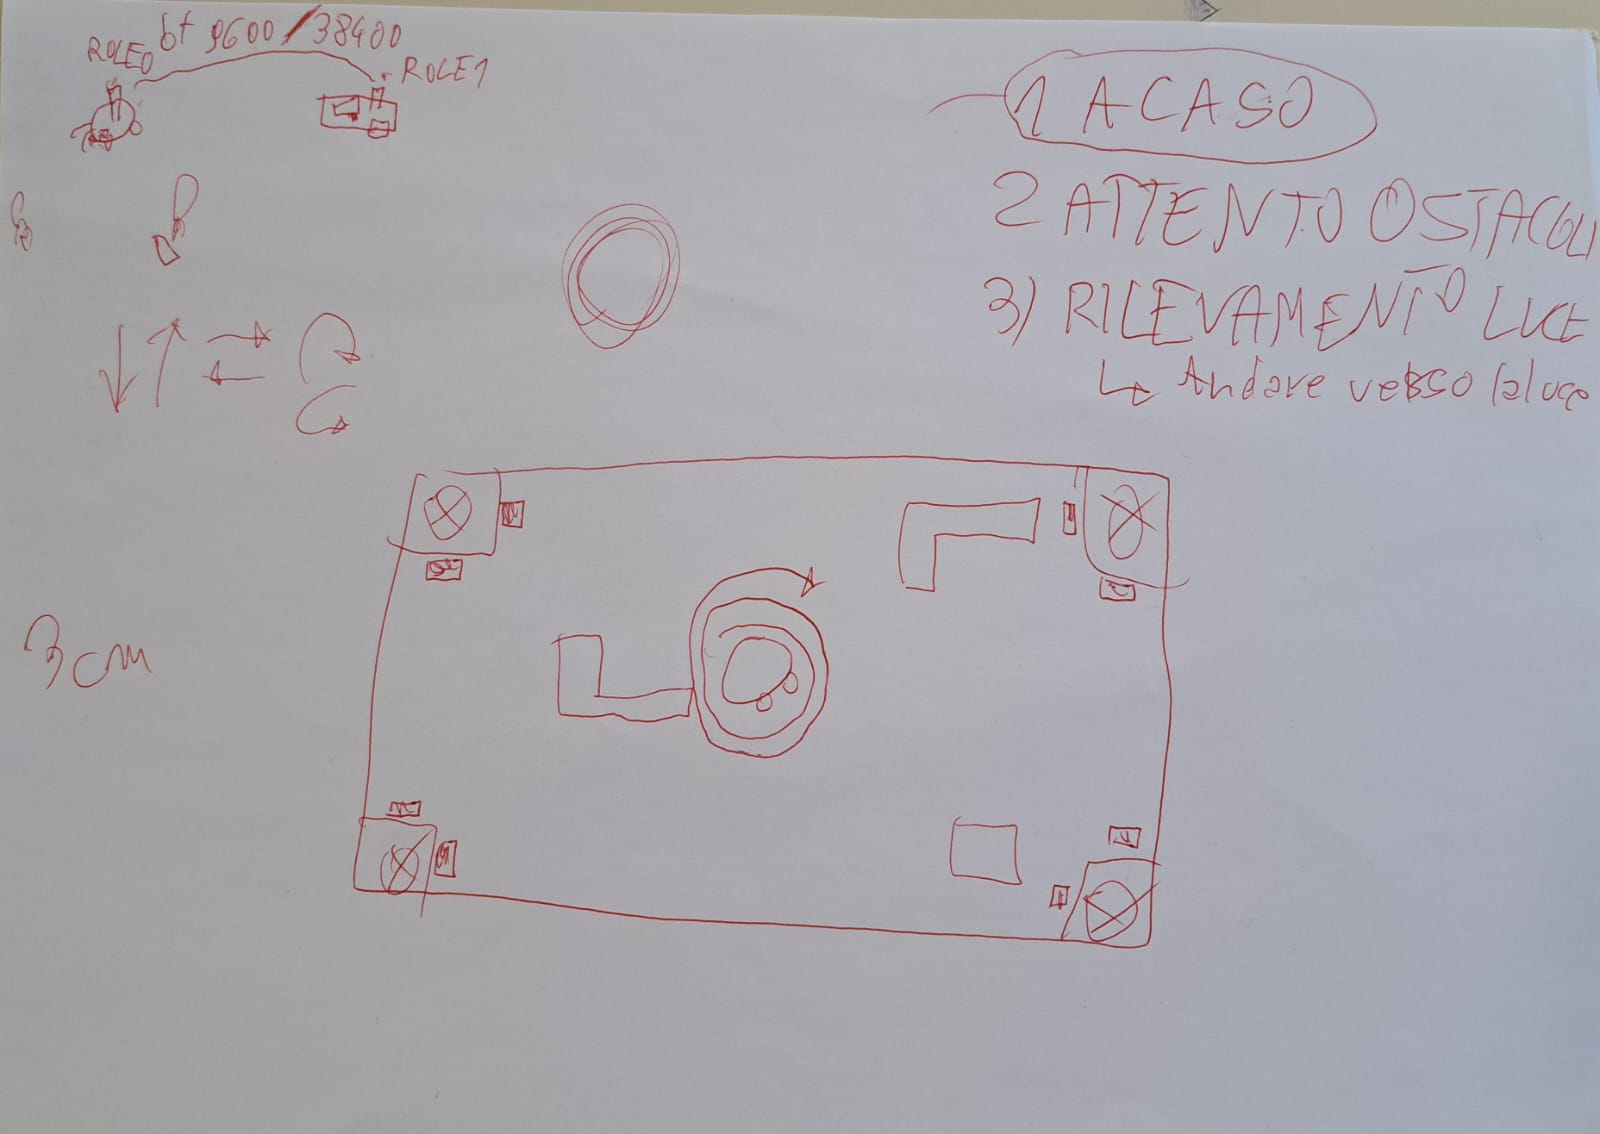 bt 9600/38400
ROLE0
ROLE1
1 A CASO
2 ATTENTO OSTACOLI
3) RILEVAMENTO LUCE
↳ Andare verso la luce
3cm